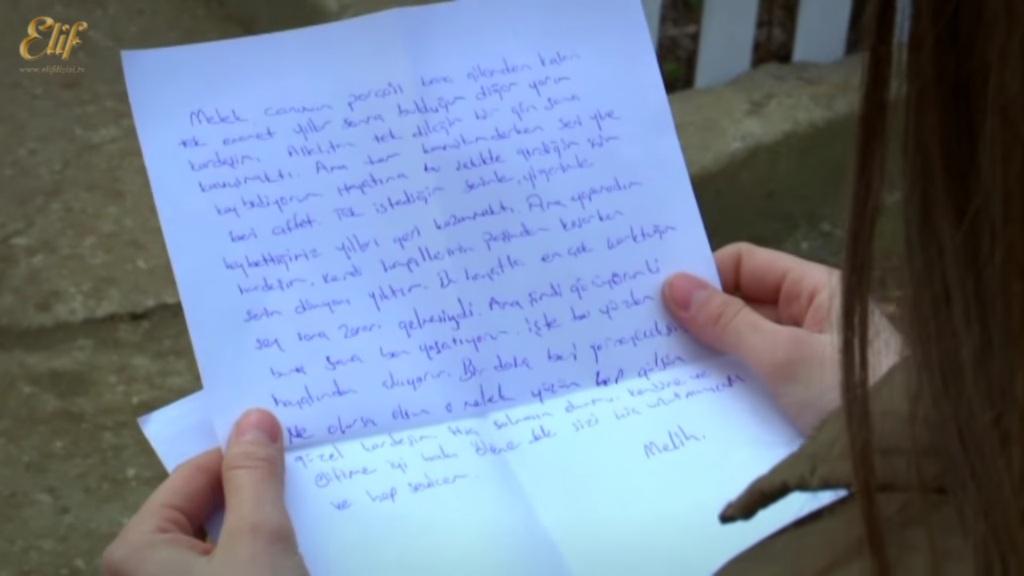 Elif
www.elifdizisi.tv
Melek canımın parçası bana ailemden kalan
tek emanet yıllar sonra bulduğum diğer yarım
kardeşim. Allahtan tek dileğim bir gün sana
kavuşmaktı. Ama tam kavuştum derken seni yine
kaybediyorum. Hayatına bu şekilde girdiğim için
beni affet. Tek istediğim seninle, yiğenimle
kaybettiğimiz yılları geri kazanmaktı. Ama yapamadım
kardeşim, kendi hayallerimin peşinden koşarken
senin dünyanı yıktım. Bu hayatta en çok korktuğum
şey sana zarar gelmesiydi. Ama şimdi görüyorum ki
bunu sana ben yaşatıyorum. İşte bu yüzden
hayatından çıkıyorum. Bir daha beni görmeyeceksin
Ne olursa olsun o melek yüzün hep gülsün
güzel kardeşim. Hiç solmasın durma. Kendine ve
Elifime iyi bak. Ölene dek sizi hiç unutmayacak
ve hep sevicem.
Melih.